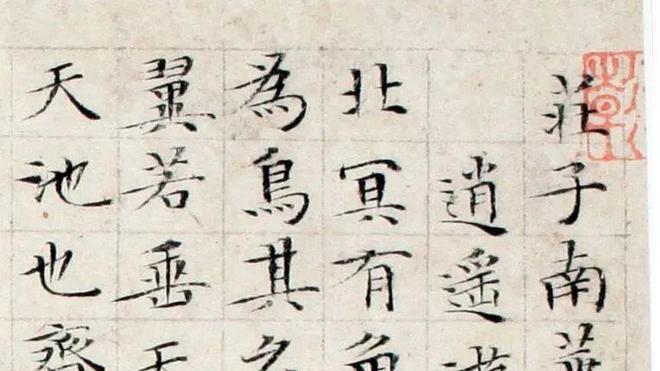 莊子南華
逍遙遊
北冥有魚
為鳥其名
翼若垂天
天池也齊